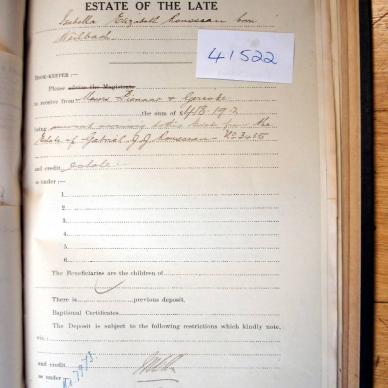 ESTATE OF THE LATE
Isabella Elizabeth Rousseau born
Heilbach
41522
BOOK-KEEPER :—
Please advise the Magistrate
to receive from Messrs
the sum of £413-19-2
being amount accruing to this Estate from the
Estate of Gabriel J. J. Rousseau - No
and credit Estate
as under :—
1.
2.
3.
4.
5.
6.
The Beneficiaries are the children of
There is previous deposit.
Baptismal Certificates
The Deposit is subject to the following restrictions which kindly note,
viz. :
and credit
as under :—